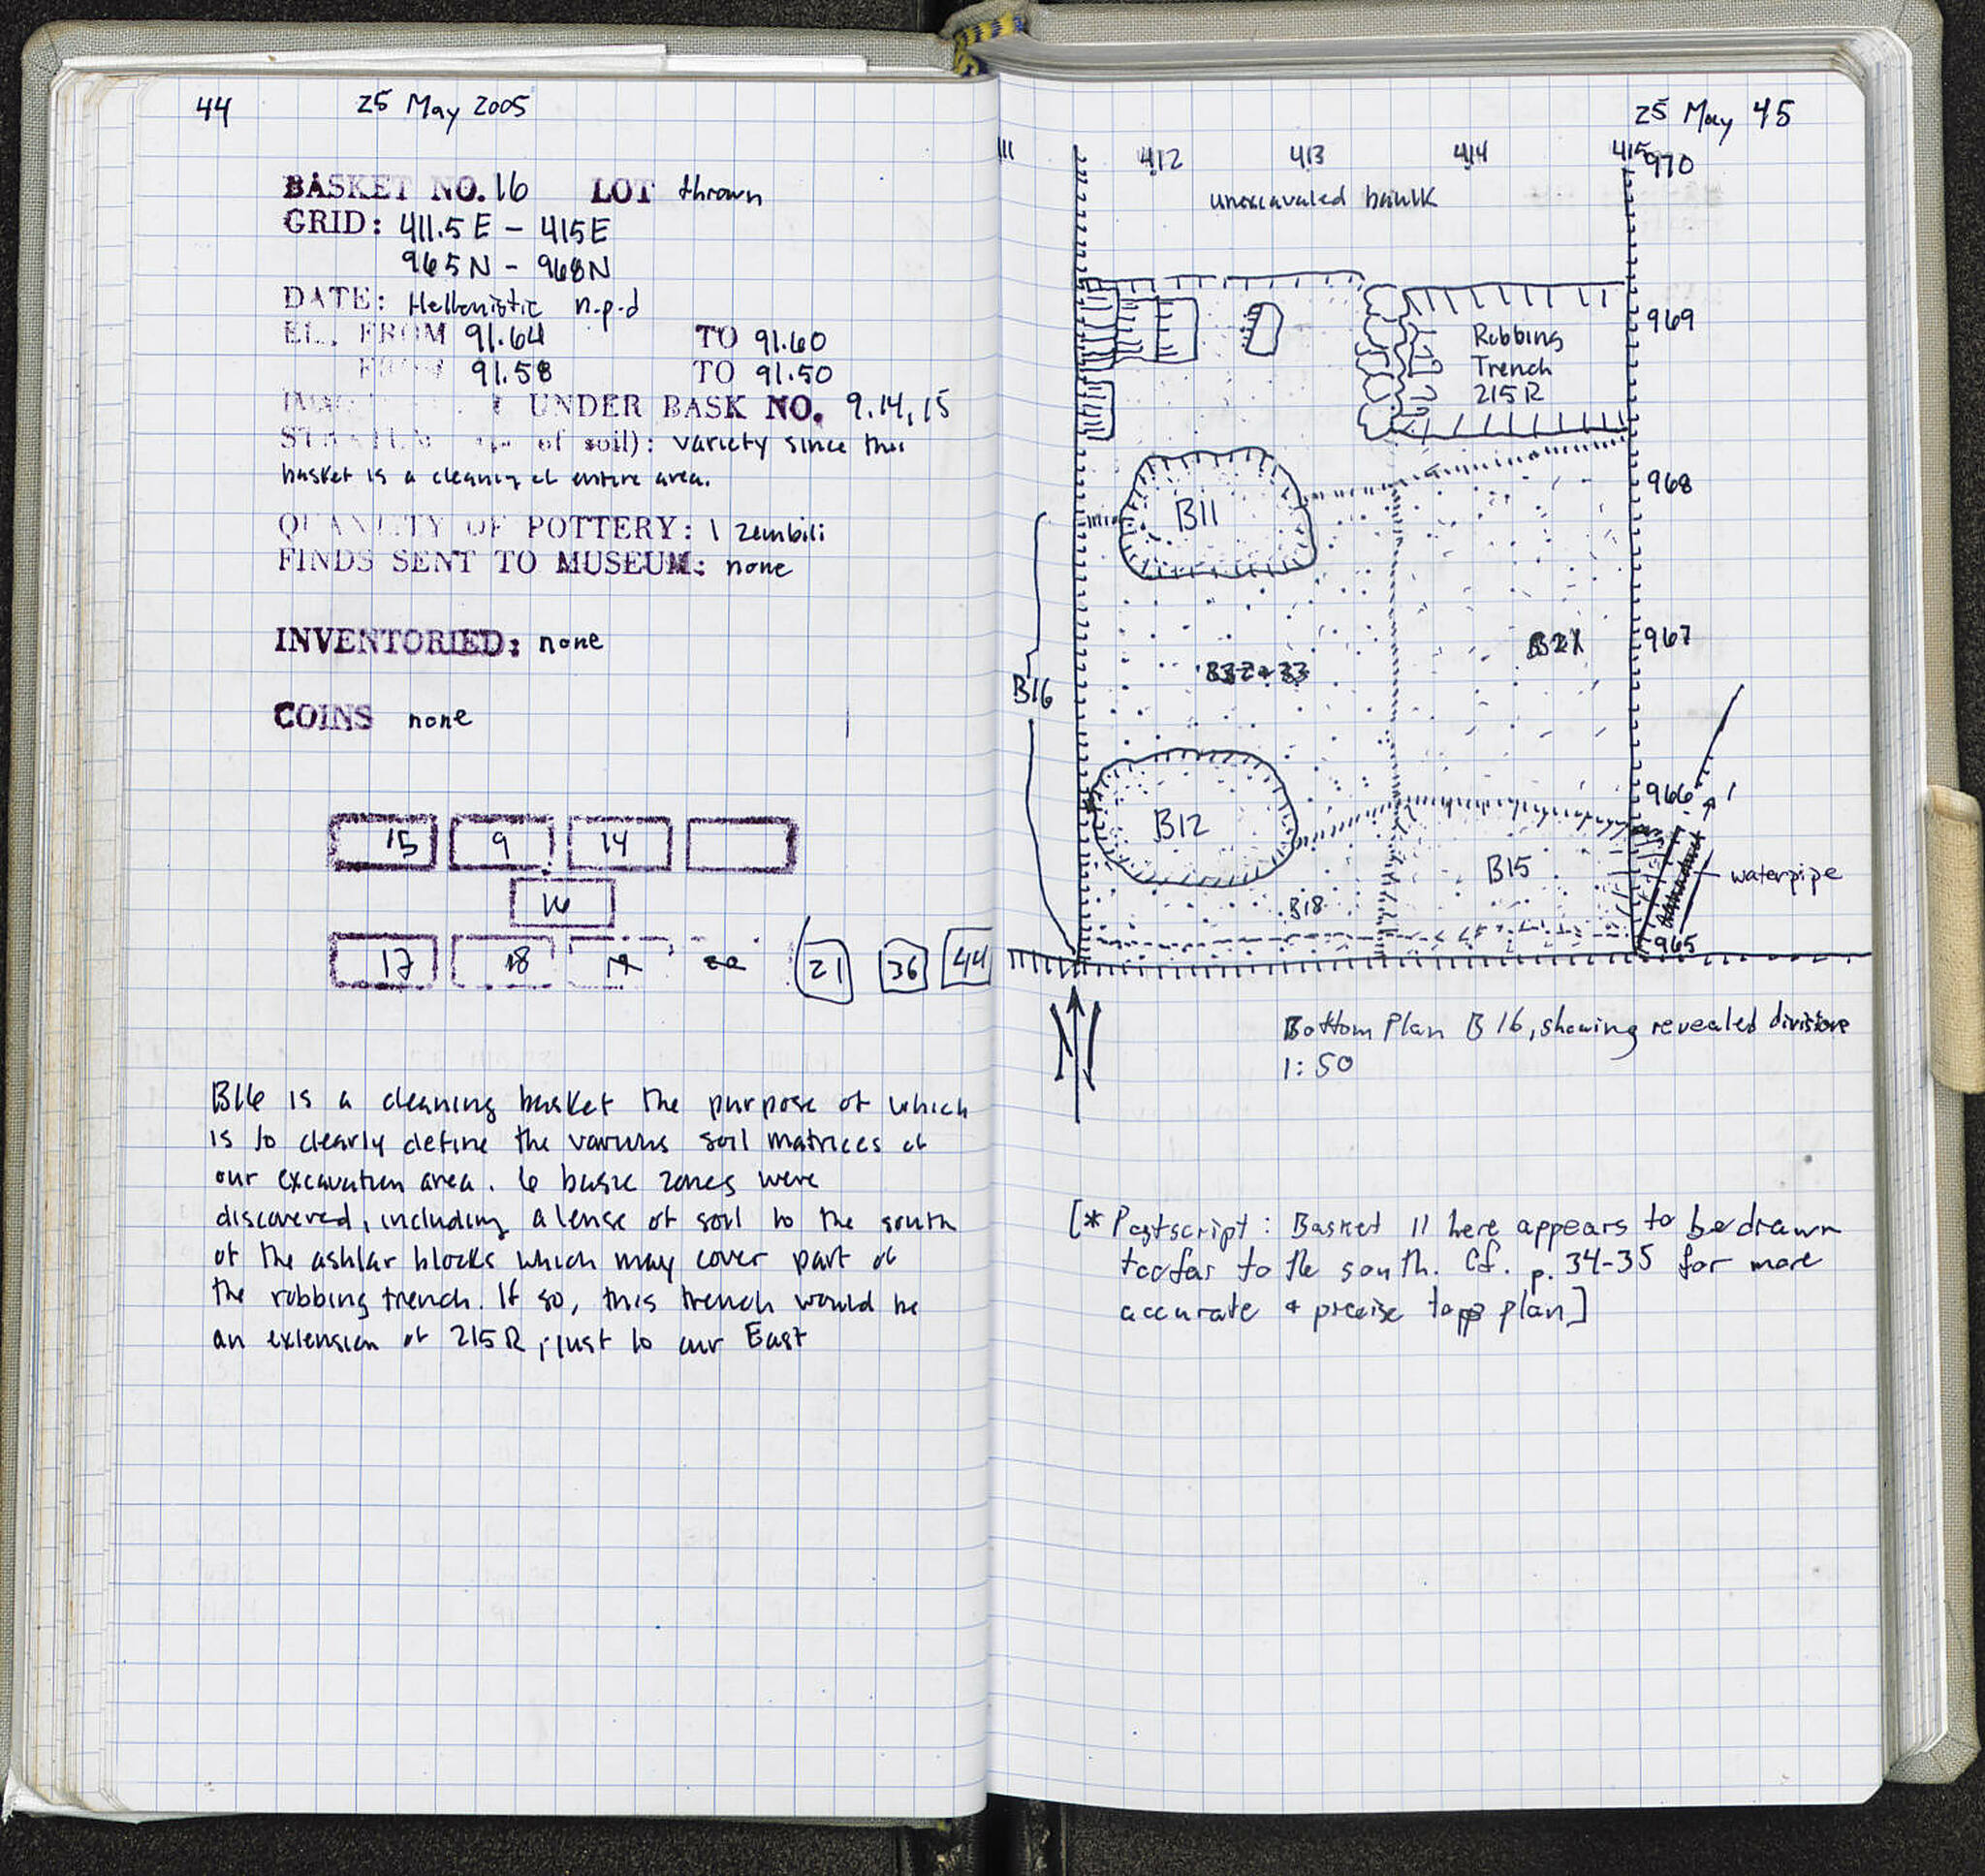 44 25 May 2005
BASKET NO. 16 LOT thrown
GRID: 411.5 E - 415E
965N - 968N
DATE: Hellenistic n.p.d
EL. FROM 91.64 TO 91.60
FROM 91.58 TO 91.50
UNDER BASK NO. 9, 14, 15
of soil): variety since this
basket is a cleaning of entire area.
QUANTITY OF POTTERY: 1 zembili
FINDS SENT TO MUSEUM: none
INVENTORIED: none
COINS none
15 9 14
16
17 18 19 20 21 36 44
B16 is a cleaning basket the purpose of which
is to clearly define the various soil matrices of
our excavation area. 6 basic zones were
discovered, including a lense of soil to the south
of the ashlar blocks which may cover part of
the robbing trench. If so, this trench would be
an extension of 215R, just to our East
25 May 45
411 412 413 414 415 970
unexcavated baulk
969
Robbing
Trench
215R
968
B11
967
B21
B32+33
B16
966
B12
B15
waterpipe
B18
965
N
Bottom Plan B16, showing revealed divisions
1:50
[* Postscript: Basket 11 here appears to be drawn
too far to the south. Cf. p. 34-35 for more
accurate + precise top plan]